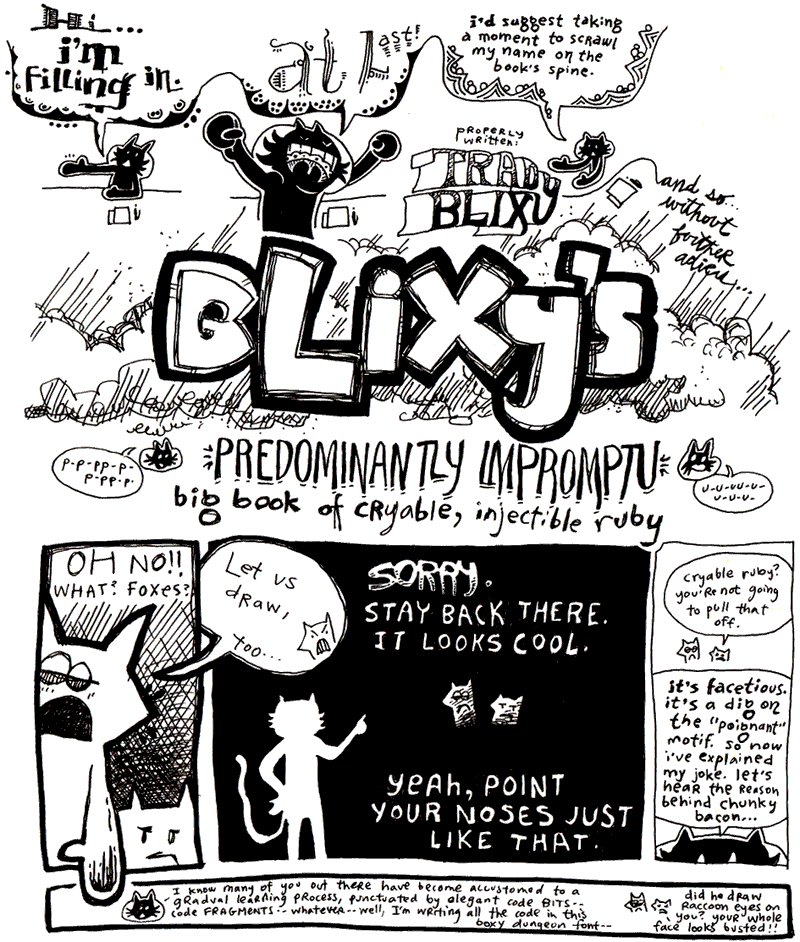 Hi...
i'm
filling in.
at Last!
i'd suggest taking
a moment to scrawl
my name on the
book's spine.
properly
written:
TRADY
BLIXY
and so...
without
further
adieu...
BLixy's
PREDOMINANTLY IMPROMPTU
big book of cryable, injectible ruby
P-P-PP-P-
P-PP-P-
U-U-UU-U-
U-U-U-
OH NO!!
WHAT? FOXES?
Let us
draw,
too...
SORRY.
STAY BACK THERE.
IT LOOKS COOL.
yeah, POINT
YOUR NOSES JUST
LIKE THAT.
cryable ruby?
you're not going
to pull that
off.
it's facetious.
it's a dig on
the "poignant"
motif. so now
i've explained
my joke. let's
hear the reason
behind chunky
bacon...
I know many of you out there have become accustomed to a
gradual learning process, punctuated by elegant code BITS--
code FRAGMENTS-- whatever-- well, I'm writing all the code in this
boxy dungeon font--
did he draw
Raccoon eyes on
you? your whole
face looks busted!!